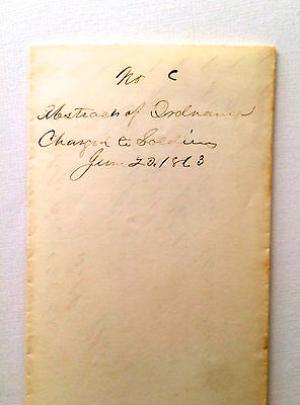 No C
Abstract of Ordnance
Charged to Soldiers
Jun 20, 1863